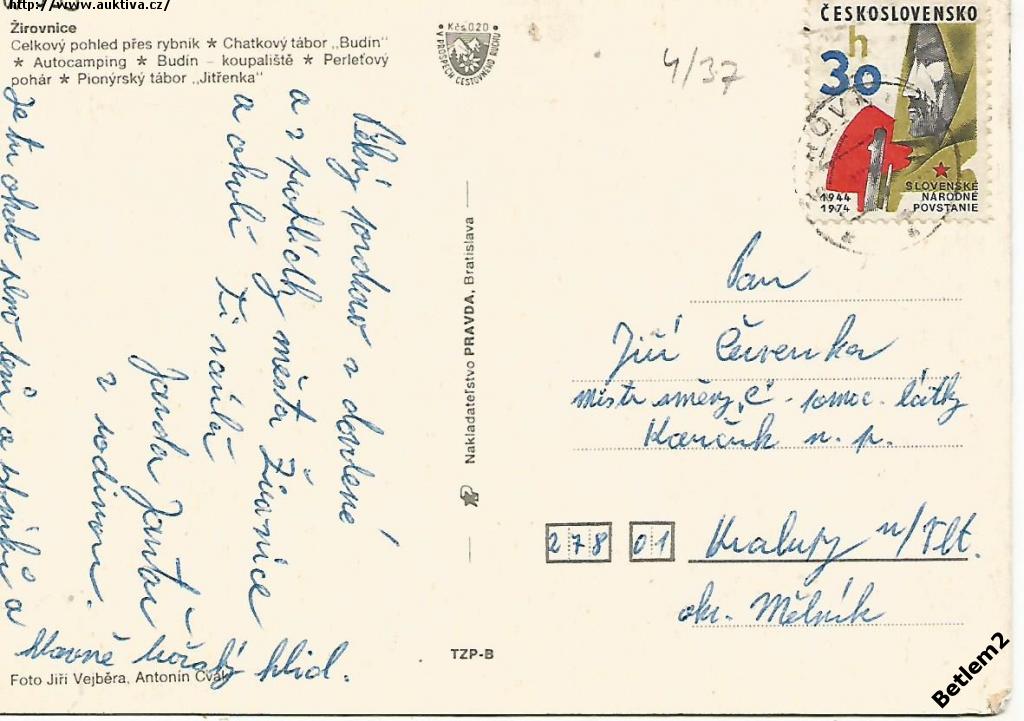 http://www.auktiva.cz/
Žirovnice
Celkový pohled přes rybník ★ Chatkový tábor „Budín"
★ Autocamping ★ Budín – koupaliště ★ Perleťový
pohár ★ Pionýrský tábor „Jitřenka"
Kčs 0,20
V PROSPĚCH CESTOVNÉHO RUCHU
4/37
ČESKOSLOVENSKO
30 h
1944
1974
SLOVENSKÉ
NÁRODNÉ
POVSTANIE
Pěkný pozdrav z dovolené
a z prohlídky města Žirovnice
a okolí Ti zasílá
Jarda Jantač
s rodinou.
Je tu okolo plno lesů a rybníků a
hlavně božský klid.
Nakladateľstvo PRAVDA, Bratislava
Pan
Jiří Červenka
mistr směny „C" - pomoc. látky
Kaučuk n. p.
278 01 Kralupy n/Vlt.
okr. Mělník
TZP-B
Foto Jiří Vejběra, Antonín Cvak
Betlem2